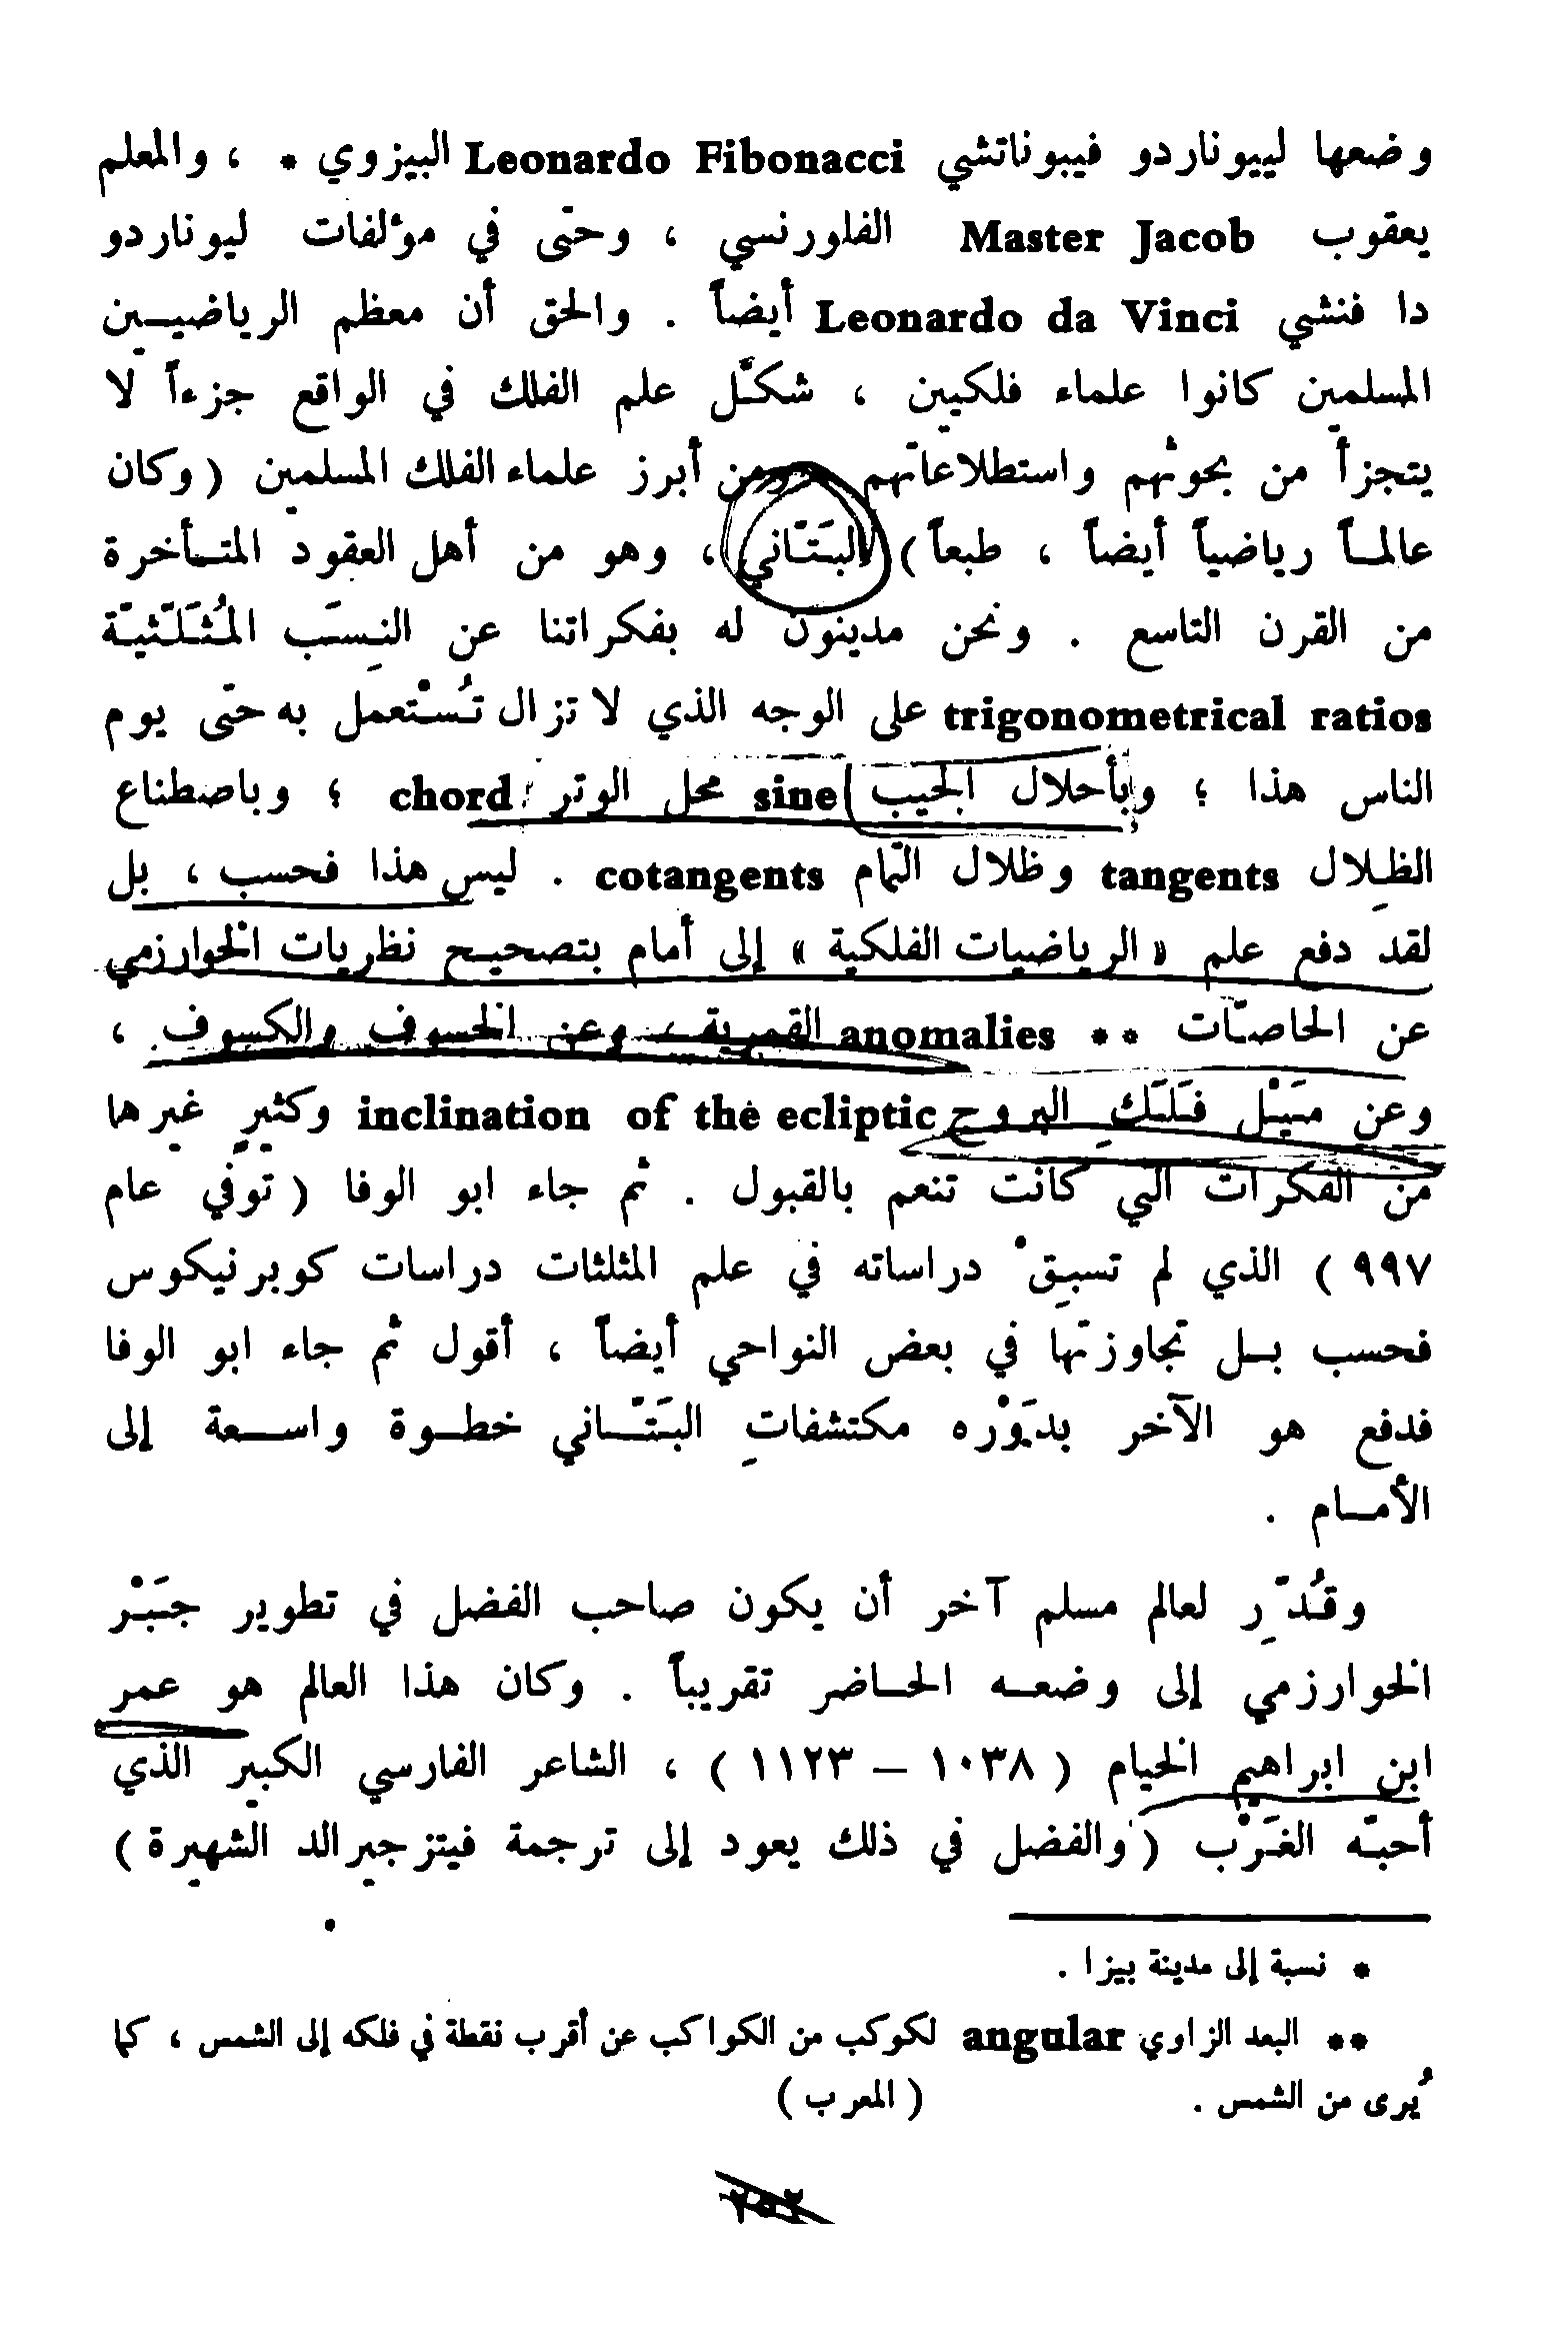 وضعها لييوناردو فيبوناتشي Leonardo Fibonacci البيزوي * ، والمعلم
يعقوب Master Jacob الفلورنسي ، وحتّى في مؤلفات ليوناردو
دا فنشي Leonardo da Vinci أيضاً . والحق أن معظم الرياضيـين
المسلمين كانوا علماء فلكيين ، شكّل علم الفلك في الواقع جزءاً لا
يتجزأ من بحوثهم واستطلاعاتهم . ومن أبرز علماء الفلك المسلمين ( وكان
عالمـاً رياضياً أيضاً ، طبعاً ) البَتّاني ، وهو من أهل العقود المتـأخرة
من القرن التاسع . ونحن مدينون له بفكراتنا عن النِسَب المُثَلَّثيّة
trigonometrical ratios على الوجه الذي لا تزال تُسْتعمل به حتّى يوم
الناس هذا ؛ وبأحلال الجيب sine محل الوتر chord ؛ وباصطناع
الظِلال tangents وظلال التّمام cotangents . ليس هذا فحسب ، بل
لقد دفع علم « الرياضيات الفلكية » إلى أمام بتصحيـح نظريات الخوارزمي
عن الحاصّات ** anomalies القمرية ، وعن الخسوف والكسوف ،
وعن مَيْل فَلَكِ البروج inclination of the ecliptic وكثيرٍ غيرها
من الفكرات التي كانت تنعم بالقبول . ثم جاء ابو الوفا ( توفي عام
٩٩٧ ) الذي لم تسبِقْ دراساته في علم المثلثات دراسات كوبرنيكوس
فحسب بـل تجاوزتها في بعض النواحي أيضاً ، أقول ثم جاء ابو الوفا
فدفع هو الآخر بدَوْره مكتشفاتِ البَتّـاني خطـوة واسـعة إلى
الأمـام .
وقُدّر لعالم مسلم آخر أن يكون صاحب الفضل في تطوير جَبْر
الخوارزمي إلى وضعـه الحـاضر تقريباً . وكان هذا العالم هو عمر
ابن ابراهيم الخيام ( ١٠٣٨ – ١١٢٣ ) ، الشاعر الفارسي الكبير الذي
أحبّه الغَرْب ( والفضل في ذلك يعود إلى ترجمة فيتزجيرالد الشهيرة )
* نسبة إلى مدينة بيزا .
** البعد الزاوي angular لكوكب من الكواكب عن أقرب نقطة في فلكه إلى الشمس ، كما
يُرى من الشمس . ( المعرب )